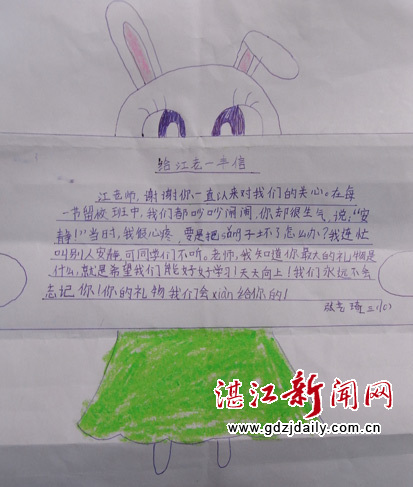 给江老一信
江老师，谢谢你一直以来对我们的关心。在每
一节留做班中，我们都吵吵闹闹，你却很生气，说："安
静！"当时，我很心疼，要是把sǎng子坏了怎么办？我连忙
叫别人安静，可同学们不听。老师，我知道你最大的礼物是
什么，就是希望我们能好好学习！天天向上！我们永远不会
忘记你！你的礼物我们会xiàn给你的！
三(10)
湛江新闻网
www.gdzjdaily.com.cn